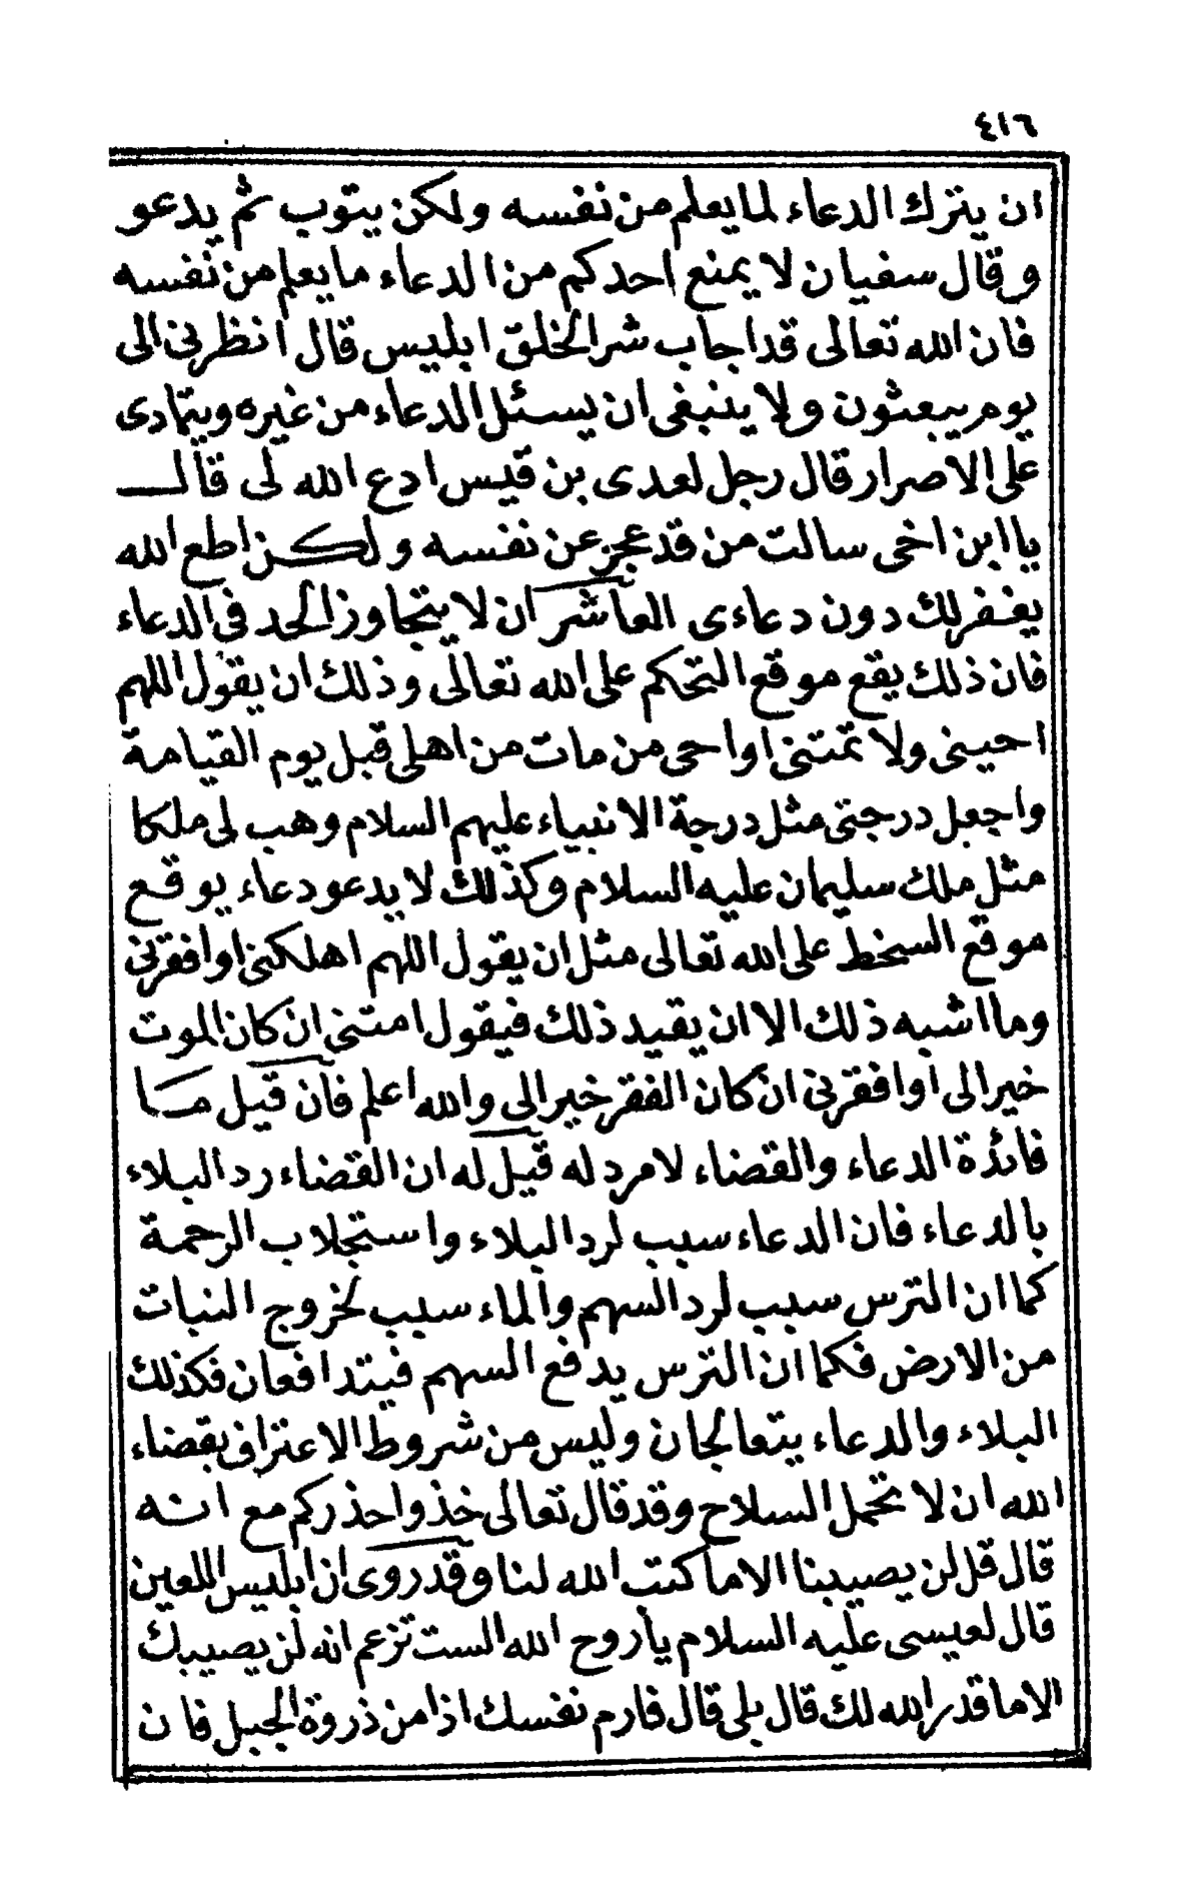 ٤١٦
ان يترك الدعاء لما يعلم من نفسه ولكن يتوب ثم يدعو
وقال سفيان لا يمنع احدكم من الدعاء ما يعلم من نفسه
فان الله تعالى قد اجاب شر الخلق ابليس قال انظرنى الى
يوم يبعثون ولا ينبغى ان يسئل الدعاء من غيره ويتمادى
على الاصرار قال رجل لعدى بن قيس ادع الله لى قال
يا ابن اخى سالت من قد عجز عن نفسه ولكن اطع الله
يغفر لك دون دعاءى العاشر ان لا يتجاوز الحد فى الدعاء
فان ذلك يقع موقع التحكم على الله تعالى وذلك ان يقول اللهم
احينى ولا تمتنى او احى من مات من اهلى قبل يوم القيامة
واجعل درجتى مثل درجة الانبياء عليهم السلام وهب لى ملكا
مثل ملك سليمان عليه السلام وكذلك لا يدعو دعاء يوقع
موقع السخط على الله تعالى مثل ان يقول اللهم اهلكنى او افقرنى
وما اشبه ذلك الا ان يقيد ذلك فيقول امتنى ان كان الموت
خيرا لى او افقرنى ان كان الفقر خيرا لى والله اعلم فان قيل ما
فائدة الدعاء والقضاء لا مرد له قيل له ان القضاء رد البلاء
بالدعاء فان الدعاء سبب لرد البلاء واستجلاب الرحمة
كما ان الترس سبب لرد السهم والماء سبب لخروج النبات
من الارض فكما ان الترس يدفع السهم فيتدافعان فكذلك
البلاء والدعاء يتعالجان وليس من شروط الاعتراف بقضاء
الله ان لا تحمل السلاح وقد قال تعالى خذوا حذركم مع انه
قال قل لن يصيبنا الا ما كتب الله لنا وقد روى ان ابليس اللعين
قال لعيسى عليه السلام يا روح الله الست تزعم انه لن يصيبك
الا ما قدر الله لك قال بلى قال فارم نفسك اذا من ذروة الجبل فان